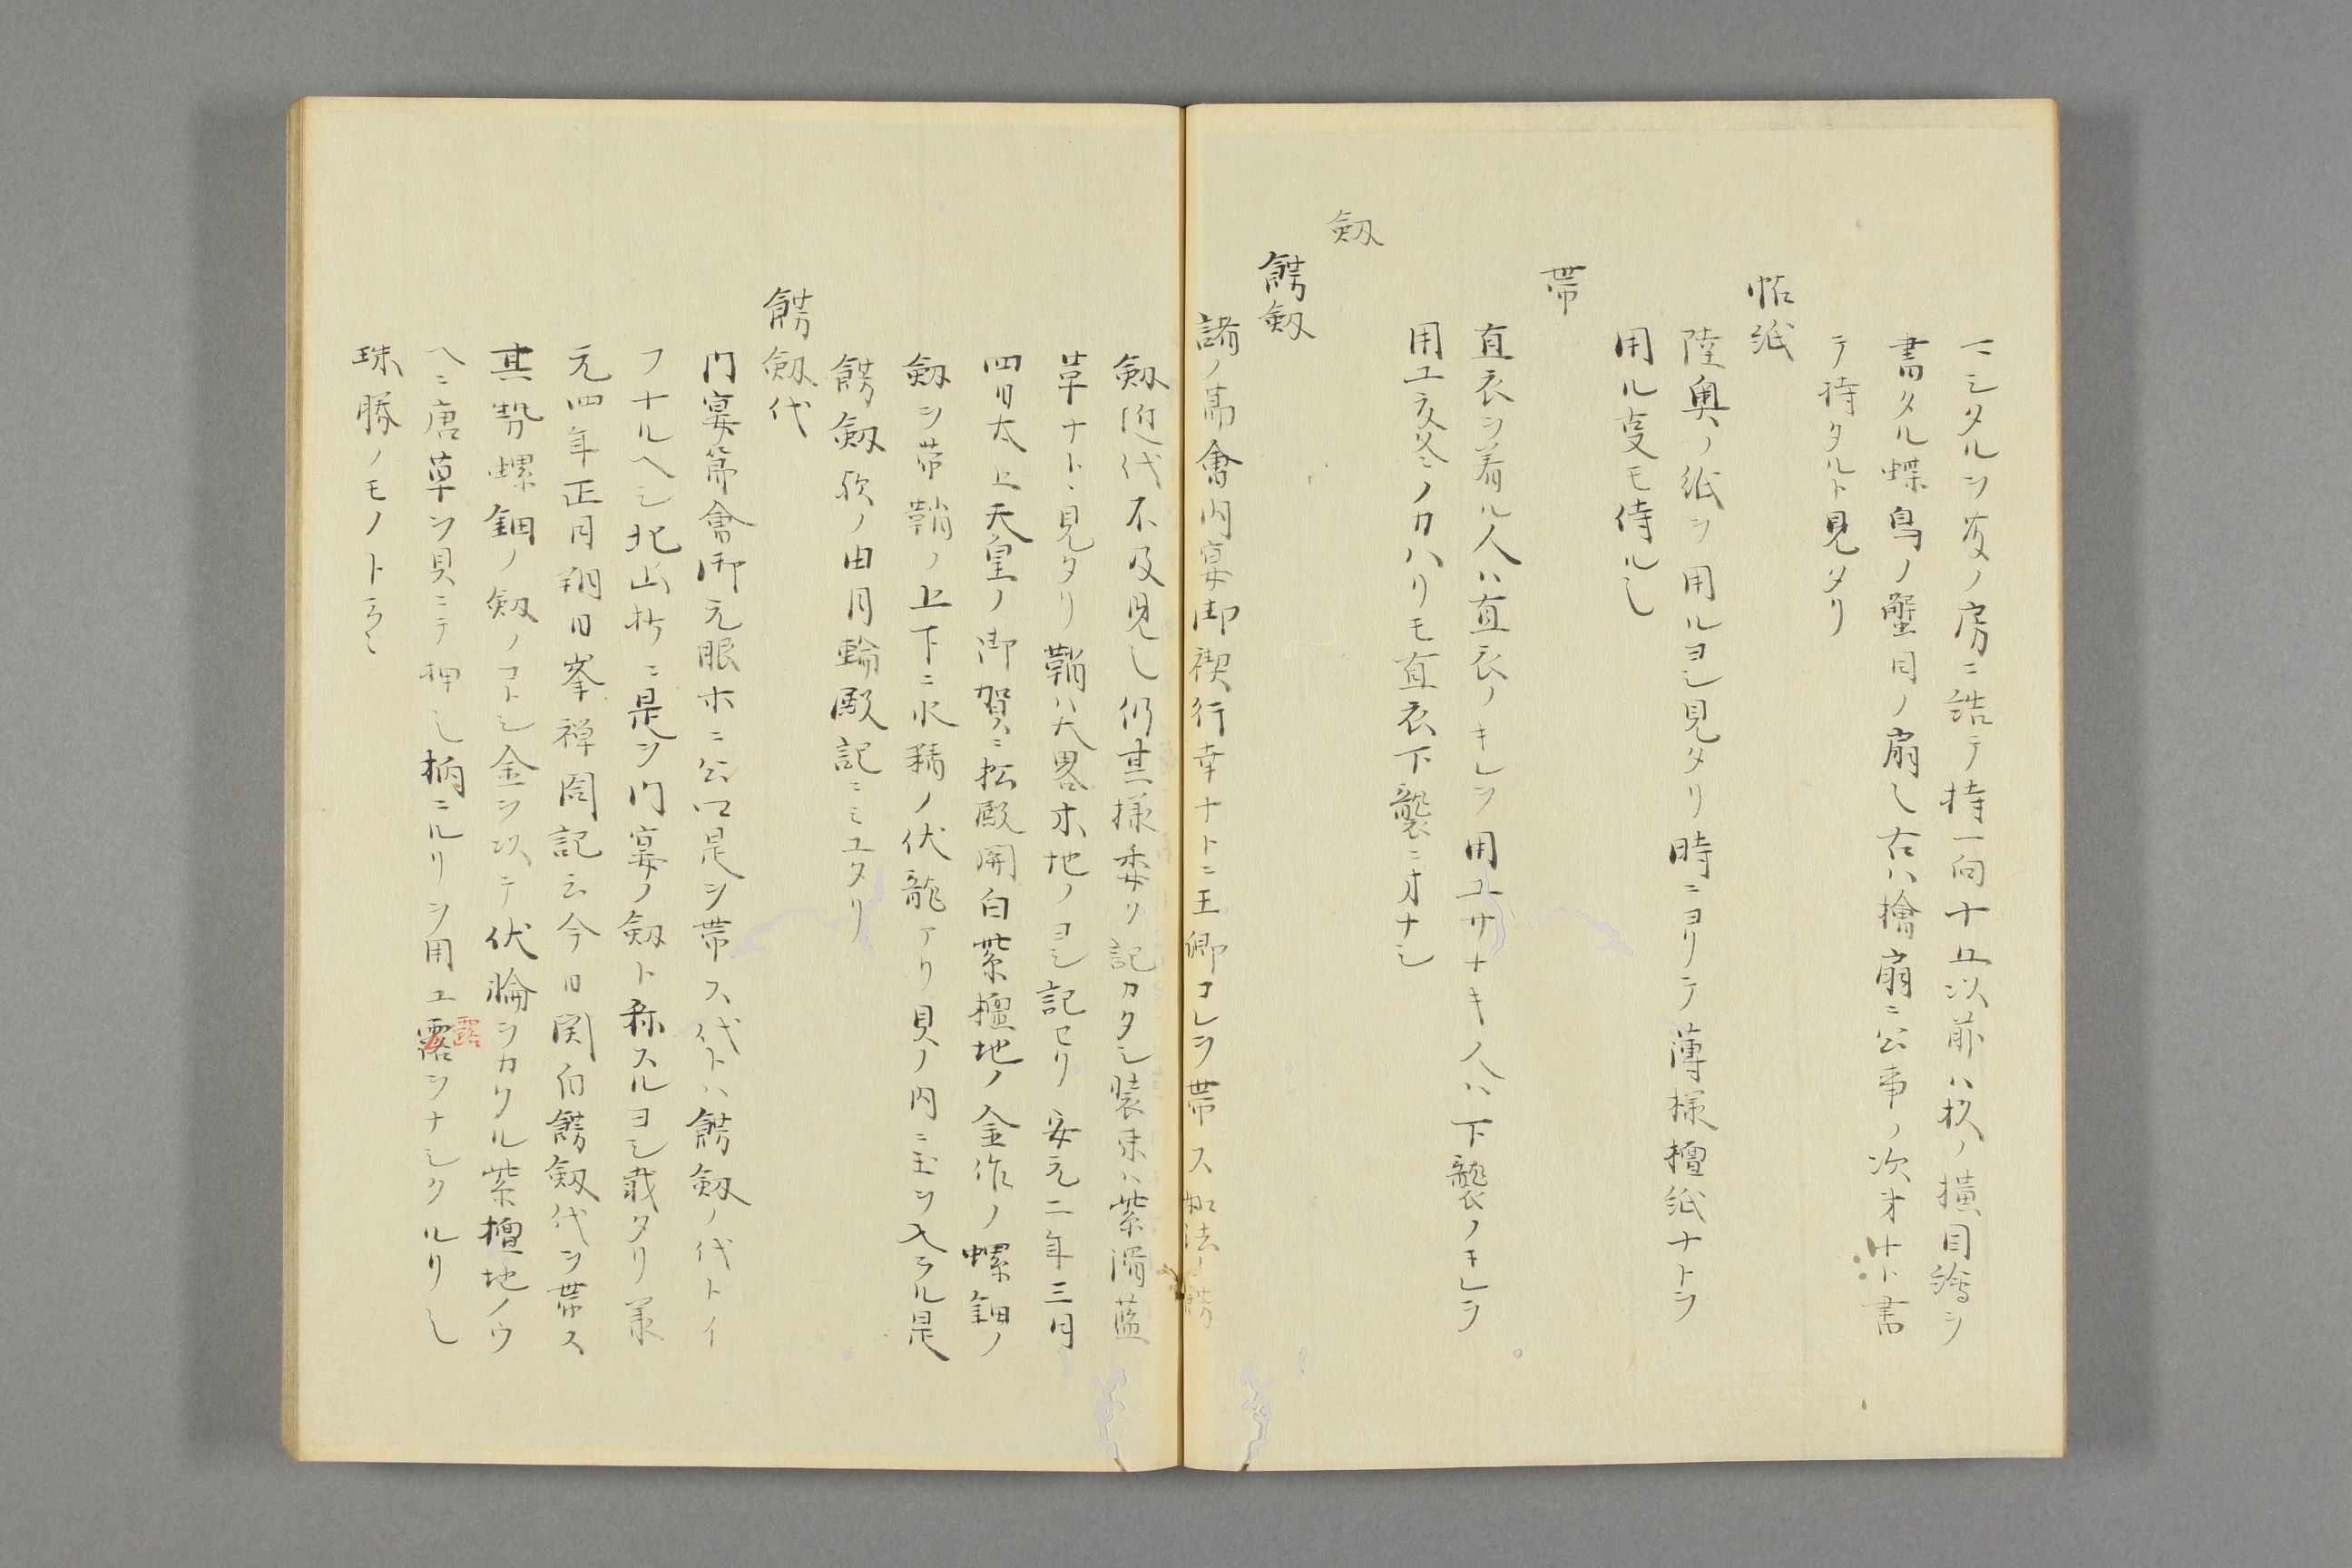 ニシタルヲ友ノ房ニ詰テ持一向十五以前ハ杉ノ横目繪ヲ
書タル蝶鳥ノ蟹目ノ扇也右ハ檜扇ニ公事ノ次才ナト書
テ持タルト見タリ
帖紙
陸奥ノ紙ヲ用ルヨシ見タリ時ニヨリテ薄様檀紙ナトヲ
用ル事モ侍ル也
帯
直衣ヲ着ル人ハ直衣ノキレヲ用ユサナキ人ハ下襲ノキレヲ
用ユ夏冬ノカハリモ直衣下襲ニ才ナシ
劔
餝劔
諸ノ節會内宴御禊行幸ナトニ王卿コレヲ帯ス如法ノ餝
劔近代不及見也仍其様委ク記カタシ装束ハ紫濃藍
革ナト見タリ鞘ハ大畧木地ノヨシ記セリ安元二年三月
四日太上天皇ノ御賀ニ松殿関白紫檀地ノ金作ノ螺鈿ノ
劔ヲ帯鞘ノ上下ニ水精ノ伏龍アリ貝ノ内ニ玉ヲ入ラル是
餝劔欤ノ由月輪殿記ニミユタリ
餝劔代
内宴節會御元服ホニ公卿是ヲ帯ス代トハ餝劔ノ代トイ
フナルヘシ北山抄ニ是ヲ内宴ノ劔ト称スルヨシ載タリ承
元四年正月朔日峯禅閤記云今日関白餝劔代ヲ帯ス
其勢螺鈿ノ劔ノコトシ金ヲ以テ伏輪ヲカクル紫檀地ノウ
ヘニ唐草ヲ貝ニテ押也柄ニルリヲ用ユ露ヲナシクルリ也
露
珠勝ノモノト云々